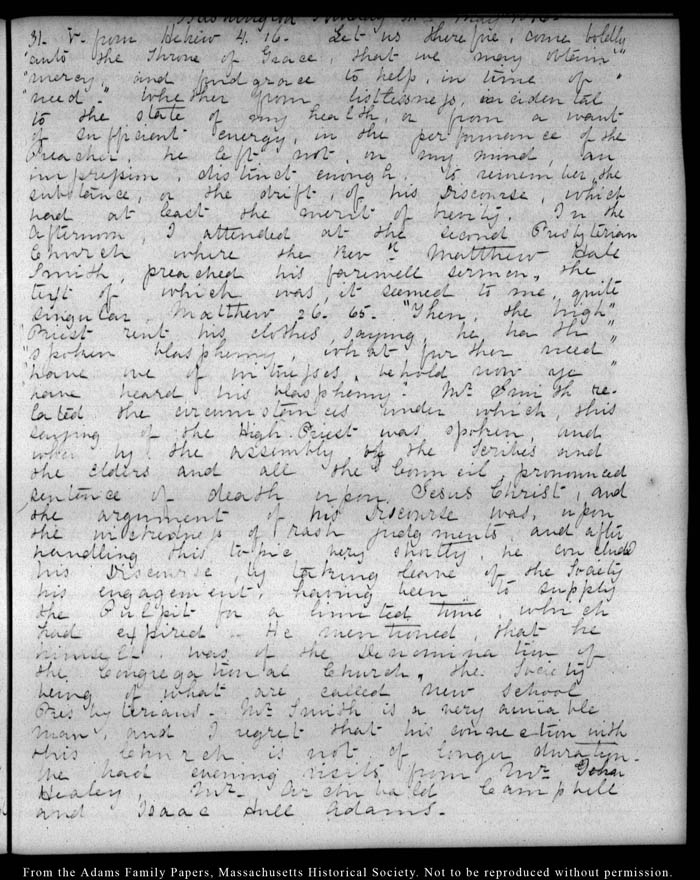 Washington Sunday 31. May 1846.
31. V. from Hebrew 4. 16. Let us therefore, come boldly"
"unto the Throne of Grace, that we may obtain"
"mercy, and find grace to help, in time of"
"need." Whether from listlessness, incidental
to the state of my health, or from a want
of sufficient energy, in the performance of the
Preacher, he left not, on my mind, an
impression, distinct enough, to remember, the
substance, or the drift, of his Discourse, which
had at least the merit of brevity. In the
afternoon, I attended at the second Presbyterian
Church where the Revd. Matthew Hale
Smith, preached his farewell sermon, the
text of which was, it seemed to me, quite
singular. Matthew 26. 65. "Then, the high"
"Priest rent his clothes, saying, he hath"
"spoken blasphemy, what further need"
"have we of witnesses, behold now ye"
"have heard his blasphemy". Mr. Smith re-
lated the circumstances under which, this
saying of the High Priest was spoken, and
when by the assembly of the Scribes and
the Elders and all the Council, pronounced
sentence of death upon Jesus Christ, and
the argument of his Discourse was, upon
the wickedness of rash judgments, and after
handling this topic very shortly, he concluded
his Discourse, by taking leave of the Society
his engagement having been to supply
the Pulpit for a limited time, which
had expired. He mentioned, that he
himself was of the Denomination of
the Congregational Church, the Society
being of what are called new school
Presbyterians. Mr. Smith is a very amiable
man, and I regret that his connection with
this Church is not of longer duration.
We had evening visits from Mr. John
Healey, Mr. Archibald Campbell
and Isaac Hull Adams.
From the Adams Family Papers, Massachusetts Historical Society. Not to be reproduced without permission.